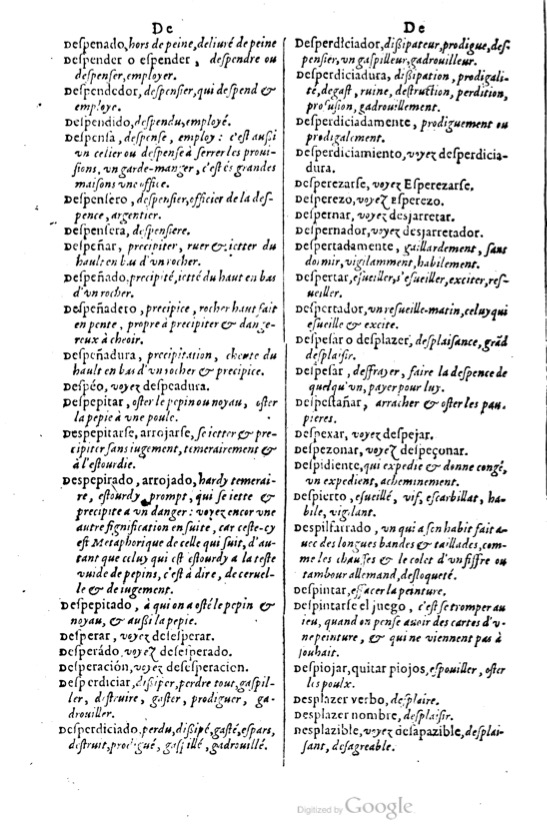 De
Deſpenado, hors de peine, deliuré de peine
Deſpender o eſpender, deſpendre ou
deſpenſer, employer.
Deſpendedor, deſpenſier, qui deſpend &
employe.
Deſpendido, deſpendu, employé.
Deſpenſa, deſpenſe, employ : c'eſt auſſi
vn celier ou deſpenſe à ſerrer les proui-
ſions, vn garde-manger, c'eſt és grandes
maiſons vne office.
Deſpenſero, deſpenſier, officier de la deſ-
pence, argentier.
Deſpenſera, deſpenſiere.
Deſpeñar, precipiter, ruer & ietter du
hault en bas d'vn rocher.
Deſpeñado, precipité, ietté du haut en bas
d'vn rocher.
Deſpeñadero, precipice, rocher haut ſait
en pente, propre à precipiter & dange-
reux à cheoir.
Deſpeñadura, precipitation, cheute du
hault en bas d'vn rocher & precipice.
Deſpéo, voyez deſpeadura.
Deſpepitar, oſter le pepin ou noyau, oſter
la pepie à vne poule.
Deſpepitarſe, arrojarſe, ſe ietter & pre-
cipiter ſans iugement, temerairement &
à l'eſtourdie.
Deſpepirado, arrojado, hardy temerai-
re, eſtourdy prompt, qui ſe iette &
precipite a vn danger : voyez encor vne
autre ſignification en ſuite, car ceſte-cy
eſt Metaphorique de celle qui ſuit, d'au-
tant que celuy qui eſt eſtourdy a la teſte
vuide de pepins, c'eſt à dire, de ceruel-
le & de iugement.
Deſpepitado, à qui on a oſté le pepin &
noyau, & auſſi la pepie.
Deſperar, voyez deſeſperar.
Deſperádo, voyez deſeſperado.
Deſperación, voyez deſeſperacion.
Deſperdiciar, diſſiper, perdre tout, gaſpil-
ler, diſtruire, gaſter, prodiguer, ga-
drouiller.
Deſperdiciado, perdu, diſſipé, gaſté, eſpars,
diſtruit, prodigué, gaſpillé, gadrouillé.
De
Deſperdiciador, diſſipateur, prodigue, deſ-
penſier, vn gaſpilleur, gadrouilleur.
Deſperdiciadura, diſſipation, prodigali-
té, degaſt, ruine, deſtruction, perdition,
profuſion, gadrouillement.
Deſperdiciadamente, prodiguement ou
prodigalement.
Deſperdiciamiento, voyez deſperdicia-
dura.
Deſperezarſe, voyez Eſperezarſe.
Deſperezo, voyez Eſperezo.
Deſpernar, voyez desjarretar.
Deſpernador, voyez desjarretador.
Deſpertadamente, gaillardement, ſans
dormir, vigilamment, habilement.
Deſpertar, eſueiller, s'eſueiller, exciter, reſ-
ueiller.
Deſpertador, vn reſueille-matin, celuy qui
eſueille & excite.
Deſpeſar o deſplazer, deſplaiſance, grād
deſplaiſir.
Deſpeſar, deffrayer, faire la deſpence de
quelqu'vn, payer pour luy.
Deſpeſtañar, arracher & oſter les pau-
pieres.
Deſpexar, voyez deſpejar.
Deſpezonar, voyez deſpeçonar.
Deſpidiente, qui expedie & donne congé,
vn expedient, acheminement.
Deſpierto, eſueillé, vif, eſcarbillat, ha-
bile, vigilant.
Deſpilfarrado, vn qui a ſon habit fait a-
uec des longues bandes & taillades, com-
me les chauſſes & le colet d'vn fiffre ou
tambour allemand, deſloqueté.
Deſpintar, effacer la peinture.
Deſpintarſe el juego, c'eſt ſe tromper au
ieu, quand on penſe auoir des cartes d'v-
ne peinture, & qui ne viennent pas à
ſouhait.
Deſpiojar, quitar piojos, eſpouiller, oſter
les poulx.
Desplazer verbo, deſplaire.
Desplazer nombre, deſplaiſir.
Desplazible, voyez deſapazible, deſplai-
ſant, deſagreable.
Digitized by Google